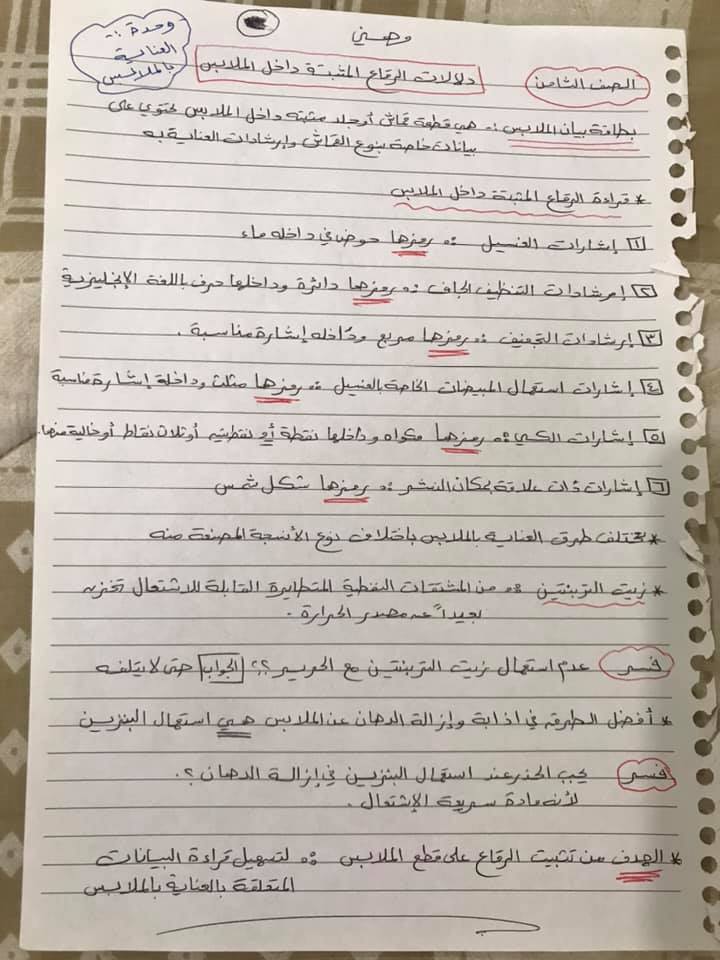 مهني
وحدة :
العناية
بالملابس
دلالات الرقاع المثبتة داخل الملابس
الصف الثامن
بطاقة بيان الملابس :- هي قطعة قماش أو جلد مثبته داخل الملابس تحتوي على
بيانات خاصة بنوع القماش وإرشادات العناية به
* قراءة الرقاع المثبتة داخل الملابس
١ إشارات الغسيل :- رمزها حوض في داخله ماء
٢ إرشادات التنظيف الجاف :- رمزها دائرة وداخلها حرف باللغة الإنجليزية
٣ إرشادات التجفيف :- رمزها مربع وداخله إشارة مناسبة .
٤ إشارات استعمال المبيضات الخاصة بالغسيل :- رمزها مثلث وداخله إشارة مناسبة
٥ إشارات الكي :- رمزها مكواه وداخلها نقطة أو نقطتين أو ثلاث نقاط أو خالية منها.
٦ إشارات ذات علاقة بمكان النشر :- رمزها شكل شمس
* تختلف طرق العناية بالملابس باختلاف نوع الأنسجة المصنعة منه
* زيت التربنتين :- من المشتقات النفطية المتطايرة القابلة للاشتعال تخزن
بعيداً عن مصدر الحرارة .
فسر عدم استعمال زيت التربنتين مع الحرير ؟؟ الجواب حتى لا يتلفه
* أفضل الطرق في اذابة وإزالة الدهان عن الملابس هي استعمال البنزين
فسر يجب الحذر عند استعمال البنزين في إزالة الدهان ؟.
لأنه مادة سريعة الإشتعال .
* الهدف من تثبيت الرقاع على قطع الملابس :- لتسهيل قراءة البيانات
المتعلقة بالعناية بالملابس